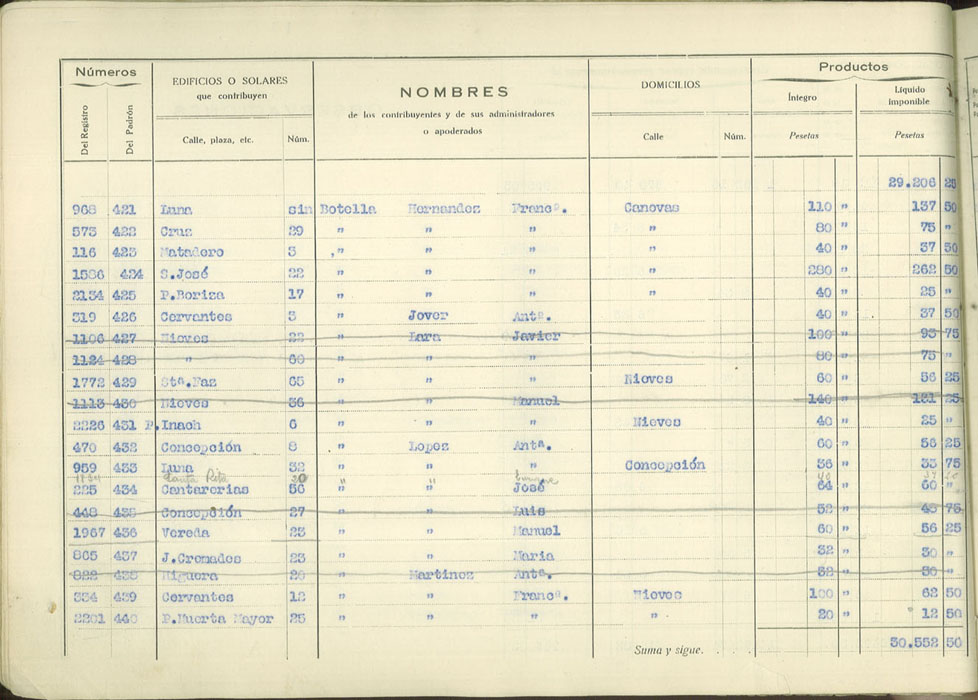 Números EDIFICIOS O SOLARES que contribuyen NOMBRES de los contribuyentes y de sus administradores o apoderados DOMICILIOS Productos
Del Registro Del Padrón Calle, plaza, etc. Núm. Calle Núm. Íntegro Pesetas Líquido imponible Pesetas
29.206 25
968 421 Luna sin Botella Hernandez Francº. Canovas 110 " 137 50
573 422 Cruz 29 " " " " 80 " 75 "
116 423 Matadero 3 " " " " 40 " 37 50
1586 424 S.José 22 " " " " 280 " 262 50
2134 425 P.Boriza 17 " " " " 40 " 25 "
319 426 Cervantes 3 " Jover Antª. 40 " 37 50
1106 427 Nieves 22 " Lara Javier 100 " 93 75
1124 428 " 60 " " " 80 " 75 "
1772 429 Stª.Faz 65 " " " Nieves 60 " 56 25
1113 430 Nieves 36 " " Manuel 140 " 131 25
2226 431 P.Inach 6 " " " Nieves 40 " 25 "
470 432 Concepción 8 " Lopez Antª. 60 " 56 25
959 433 Luna 32 " " " Concepción 36 " 33 75
Santa Rita 20 " "
225 434 Cantarerias 56 José 64 " 60 "
448 435 Concepción 27 " " Luis 52 " 48 75
1967 436 Vereda 23 " " Manuel 60 " 56 25
865 437 J.Cremades 23 " " Maria 32 " 30 "
822 438 Higuera 20 " Martinez Antª. 32 " 30 "
334 439 Cervantes 12 " " Francª. Nieves 100 " 62 50
2201 440 P.Huerta Mayor 25 " " " " 20 " 12 50
Suma y sigue. . . . 30.552 50